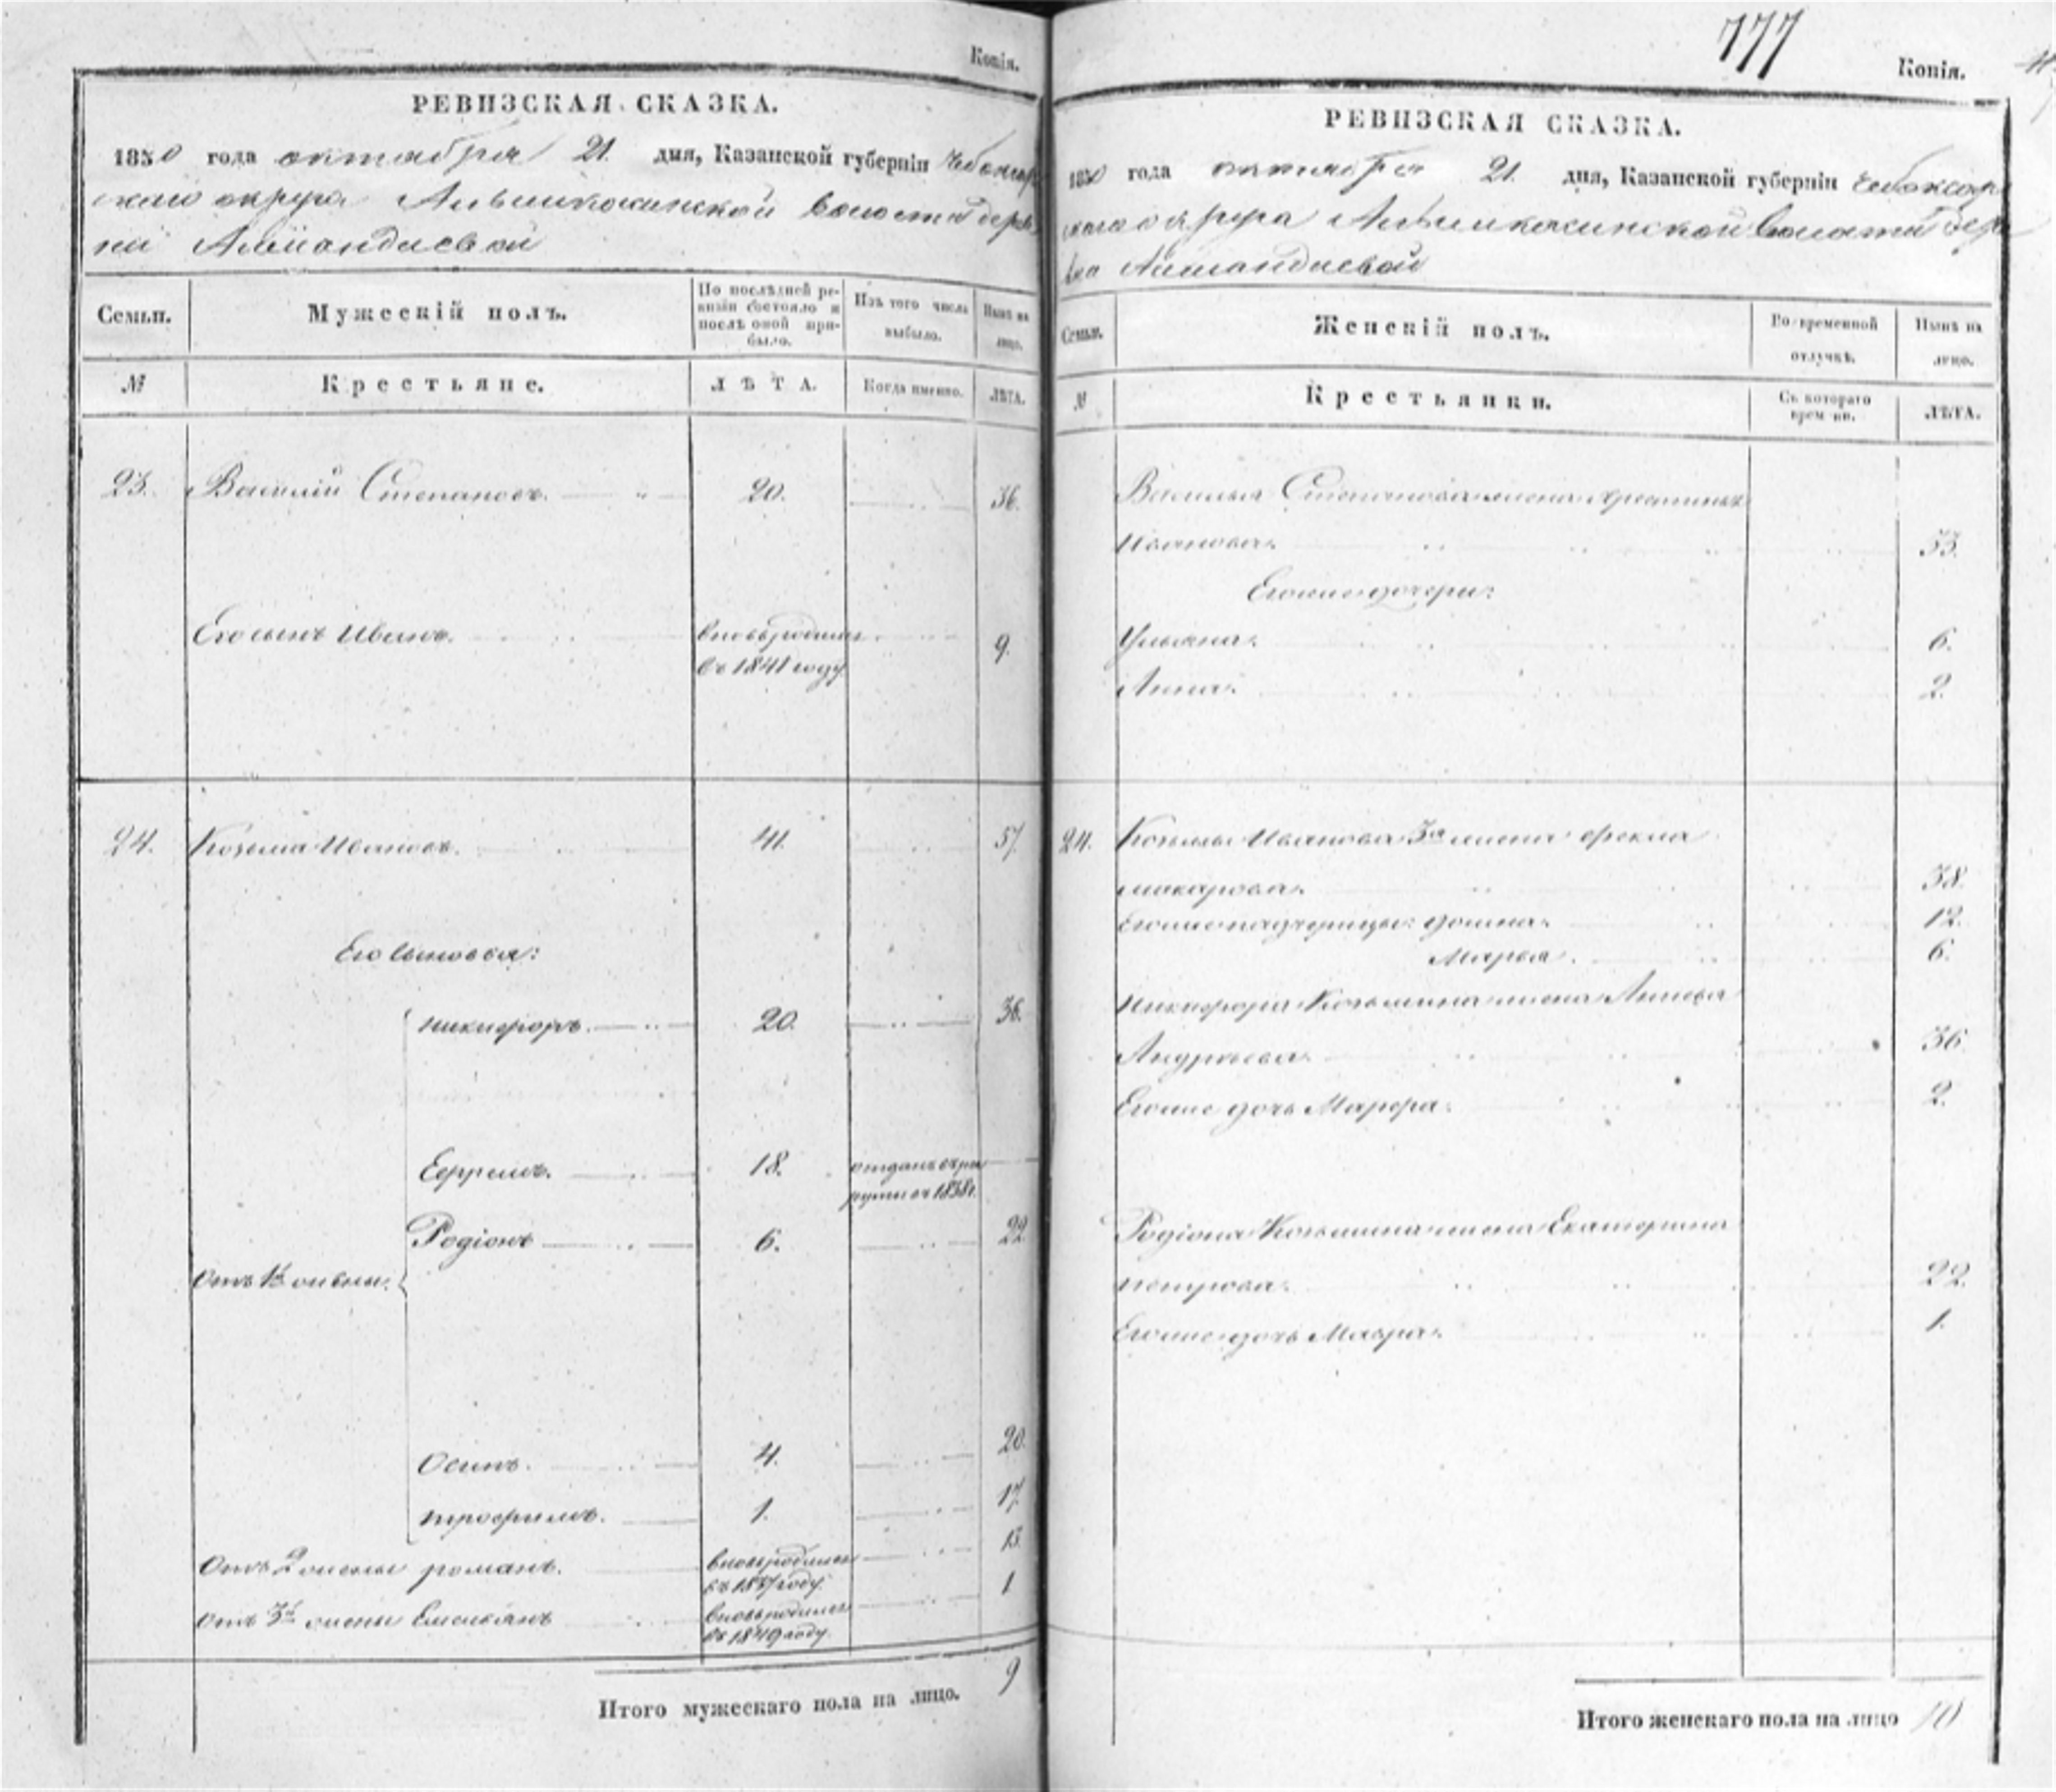 Копія.
РЕВИЗСКАЯ СКАЗКА.
1850 года октября 21. дня, Казанской губерніи Чебоксар
скаго округа волости дерев
ни
Семьи.
Мужескій полъ.
По послѣдней ре-
визіи состояло и
послѣ оной при-
было.
Изъ того числа
выбыло.
Нынѣ на
лицо.
№
Крестьяне.
ЛѢТА.
Когда именно.
ЛѢТА.
23. Василій Степановъ. 20. 36.
Его сынъ Иванъ. вновь рожден 9.
въ 1841 году
24. Козьма Ивановъ. 41. 57.
Его сыновья:
Никифоръ. 20. 36.
Ефремъ. 18. отданъ въ рек
руты въ 1838 г.
Родіонъ 6. 22.
Отъ 1й жены.
Осипъ. 4. 20.
Трофимъ. 1. 17.
Отъ 2 жены романъ. вновь рожден 13.
въ 1837 году.
Отъ 3й жены Емельянъ вновь рожден 1
въ 1849 году.
Итого мужескаго пола на лицо. 9
777
Копія.
РЕВИЗСКАЯ СКАЗКА.
1850 года октября 21. дня, Казанской губерніи Чебоксар
скаго округа волости дере
вни
Семьи.
Женскій полъ.
Во временной
отлучкѣ.
Нынѣ на
лицо.
№
Крестьянки.
Съ котораго
времени.
ЛѢТА.
Василья Степанова жена
Иванова. 33.
Его же дочери:
Ульяна. 6.
Анна. 2.
24. Козьмы Иванова 3я жена Фекла
Макарова. 38.
Его же падчерицы: Домна. 12.
Марья. 6.
Никифора Козьмина жена
Андреева. 36
Его же дочь Марфа. 2.
Родіона Козьмина жена Екатерина
Петрова. 22.
Его же дочь Мавра. 1.
Итого женскаго пола на лицо 10